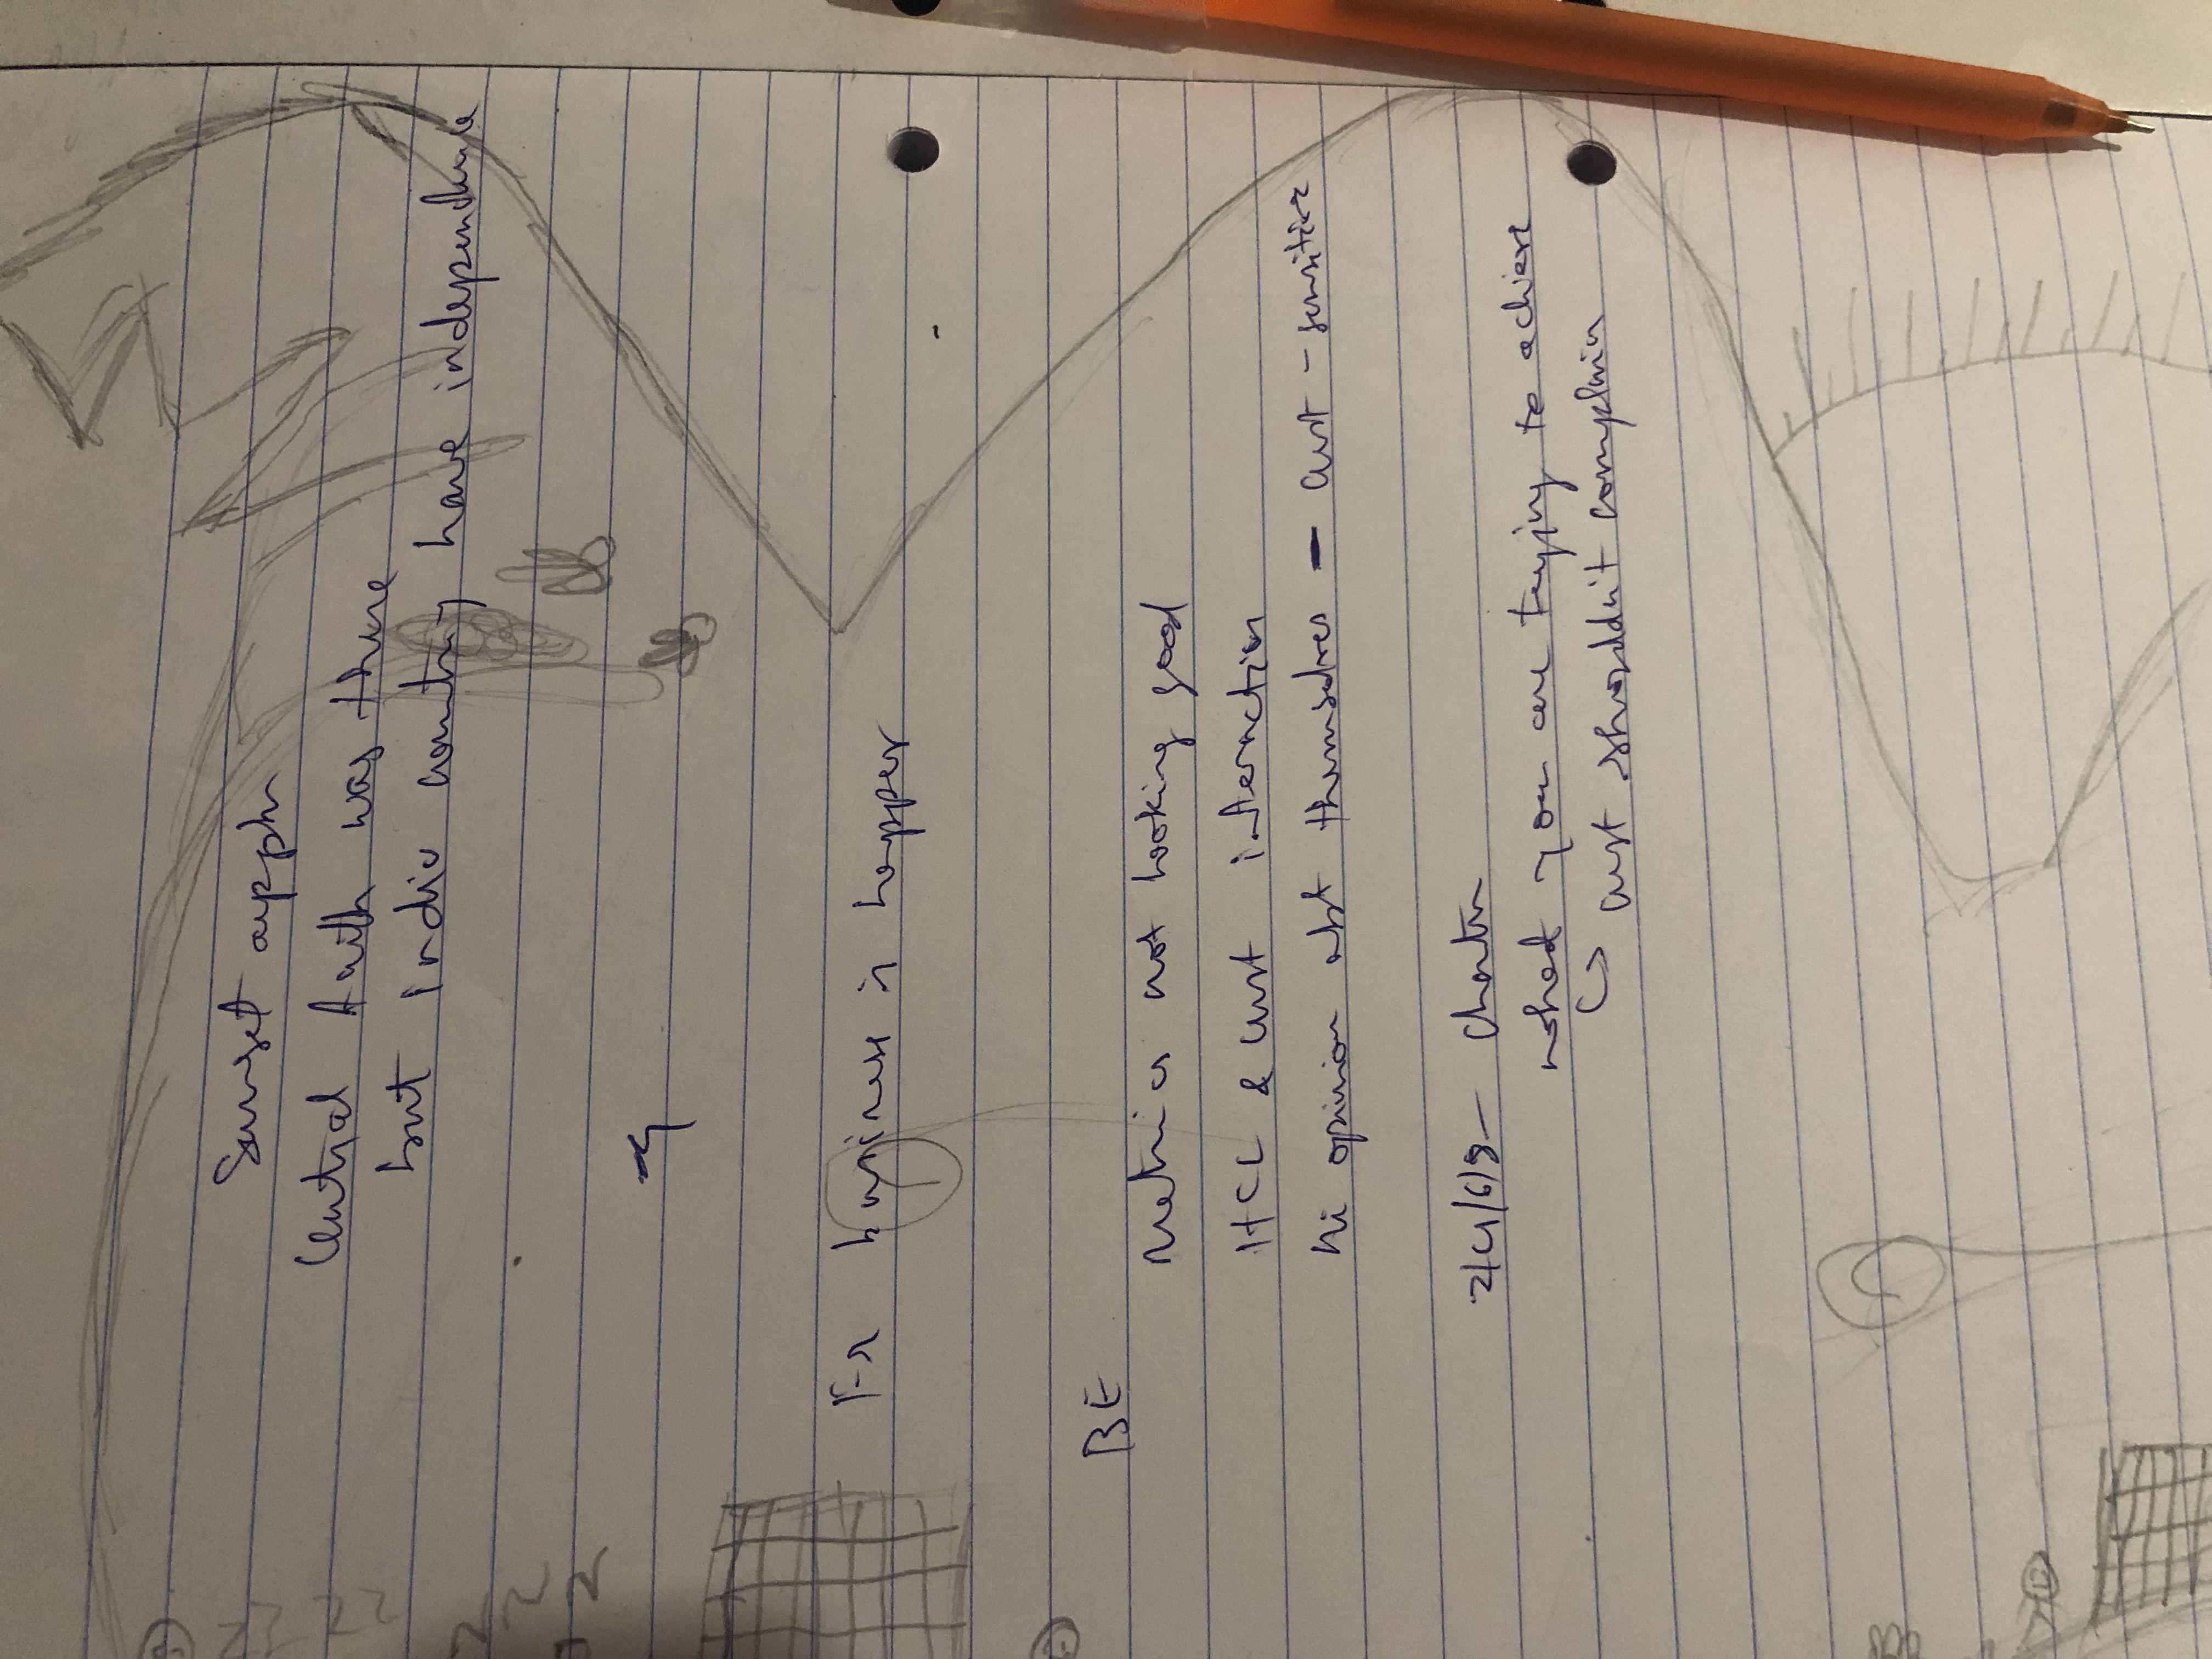 Sunset
Central faith was there
but Indiv country have independence
Fr business is happer
BE
Metrics not looking good
HCL & cust interaction
Hi opinion abt themselves - cust - sensitive
2/4/6/8 - Charter
what you are trying to achieve
↳ cust shouldn't complain
2
2
2